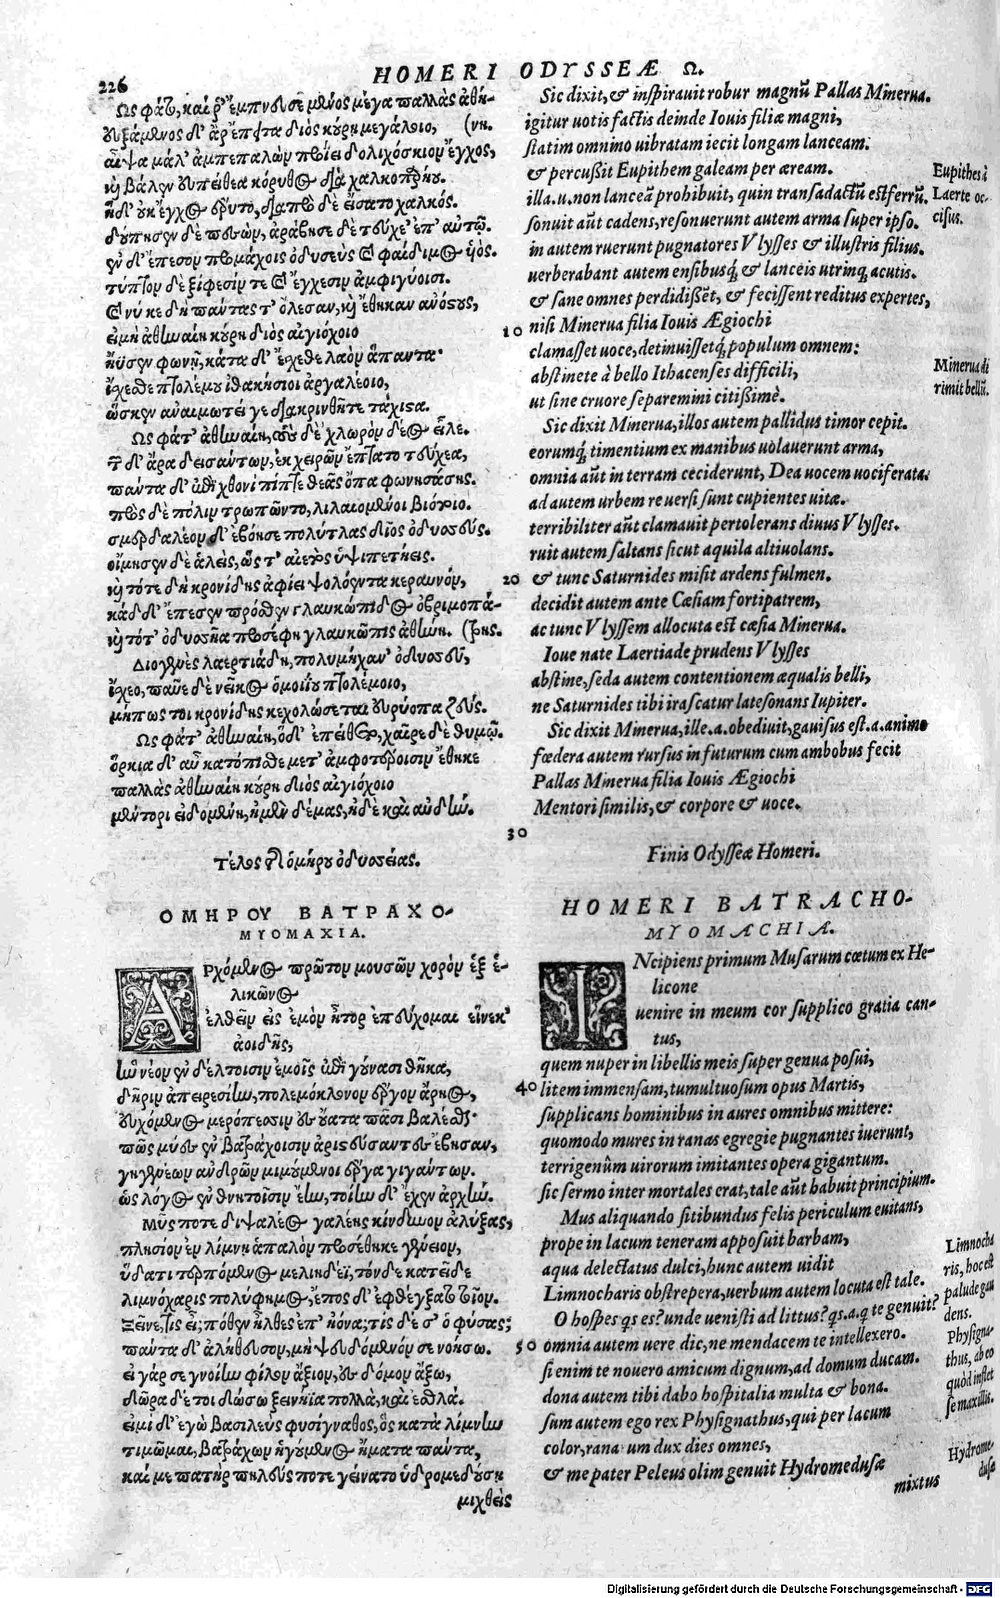 226
HOMERI ODYSSEÆ Ω.
Ὣς φάτ, καί ῥ' ἔμπνευσε μένος μέγα παλλὰς ἀθή-
ευξάμενος δ' ἄρ ἔπειτα διὸς κούρῃ μεγάλοιο, (νη.
αἶψα μάλ' ἀμπεπαλὼν προΐει δολιχόσκιον ἔγχος,
καὶ βάλεν ευπείθεα κόρυθος διὰ χαλκοπαρήου.
ἡ δ' οὐκ ἔγχος ἔρυτο, διαπρὸ δὲ εἴσατο χαλκός.
δούπησεν δὲ πεσὼν, ἀράβησε δὲ τεύχε' ἐπ' αὐτῷ.
ἐν δ' ἔπεσον προμάχοις ὀδυσεὺς καὶ φαίδιμος υἱός.
τύπτον δὲ ξίφεσίν τε καὶ ἔγχεσιν ἀμφιγύοισι.
καὶ νύ κε δὴ πάντας τ' ὄλεσαν, καὶ ἔθηκαν ἀνόστους,
εἰ μὴ ἀθηναίη κούρη διὸς αἰγιόχοιο
ἤϋσεν φωνῇ, κάτα δ' ἔσχεθε λαὸν ἅπαντα·
ἴσχεσθε πτολέμου ἰθακήσιοι ἀργαλέοιο,
ὥς κεν ἀναιμωτεί γε διακρινθῆτε τάχιστα.
Ὣς φάτ' ἀθηναίη, τοὺς δὲ χλωρὸν δέος εἷλε.
τῶν δ' ἄρα δεισάντων, ἐκ χειρῶν ἔπτατο τεύχεα,
πάντα δ' ἐπὶ χθονὶ πῖπτε θεᾶς ὄπα φωνησάσης.
πρὸς δὲ πόλιν τρωπῶντο, λιλαιομένοι βιότοιο.
σμερδαλέον δ' ἐβόησε πολύτλας δῖος ὀδυσσεύς.
οἴμησεν δὲ ἀλεὶς, ὥς τ' αἰετὸς ὑψιπετήεις.
καὶ τότε δὴ κρονίδης ἀφίει ψολόεντα κεραυνόν,
κὰδ δ' ἔπεσεν πρόσθεν γλαυκώπιδος ὀβριμοπά-
καὶ τότ' ὀδυσσῆα προσέφη γλαυκῶπις ἀθήνη. (τρης.
Διογενὲς λαερτιάδη, πολυμήχαν' ὀδυσσεῦ,
ἴσχεο, παῦε δὲ νεῖκος ὁμοιΐου πτολέμοιο,
μήπως τοι κρονίδης κεχολώσεται εὐρύοπα ζεύς.
Ὣς φάτ' ἀθηναίη, ὁ δ' ἐπείθετο, χαῖρε δὲ θυμῷ.
ὅρκια δ' αὖ κατόπισθε μετ' ἀμφοτέροισιν ἔθηκε
παλλὰς ἀθηναίη κούρη διὸς αἰγιόχοιο
μέντορι εἰδομένη, ἠμὲν δέμας, ἠδὲ καὶ αὐδήν.
Τέλος τῆς ὁμήρου ὀδυσσείας.
ΟΜΗΡΟΥ ΒΑΤΡΑΧΟ-
ΜΥΟΜΑΧΙΑ.
Αρχόμενος πρῶτον μουσῶν χορὸν ἐξ ἑ-
λικῶνος
ἐλθεῖν εἰς ἐμὸν ἦτορ ἐπεύχομαι εἵνεκ'
ἀοιδῆς,
ἣν νέον ἐν δέλτοισιν ἐμοῖς ἐπὶ γούνασι θῆκα,
δῆριν ἀπειρεσίην, πολεμόκλονον ἔργον ἄρηος,
ευχόμενος μερόπεσσιν ἐν οὔατα πᾶσι βαλέσθαι·
πῶς μύες ἐν βατράχοισιν ἀριστεύσαντες ἔβησαν,
γηγενέων ἀνδρῶν μιμούμενοι ἔργα γιγάντων.
ὡς λόγος ἐν θνητοῖσιν ἔην, τοίην δ' ἔχεν ἀρχήν.
Μῦς ποτε διψαλέος γαλέης κίνδυνον ἀλύξας,
πλησίον ἐν λίμνῃ ἁπαλὸν προσέθηκε γένειον,
ὕδατι τερπόμενος μελιηδέϊ, τόνδε κατεῖδε
λιμνόχαρις πολύφημος, ἔπος δ' ἐφθέγξατο τοῖον.
Ξεῖνε, τίς εἶ; πόθεν ἦλθες ἐπ' ἠϊόνα; τίς δέ σ' ὁ φύσας;
πάντα δ' ἀλήθευσον, μὴ ψευδόμενόν σε νοήσω.
εἰ γάρ σε γνοίην φίλον ἄξιον, ἐς δόμον ἄξω,
δῶρα δέ τοι δώσω ξεινήϊα πολλὰ, καὶ ἐσθλά.
εἰμὶ δ' ἐγὼ βασιλεὺς φυσίγναθος, ὃς κατὰ λίμνην
τιμῶμαι, βατράχων ἡγούμενος ἤματα πάντα,
καί με πατὴρ πηλεύς ποτε γείνατο ὑδρομεδούσῃ
μιχθεὶς
Sic dixit, & inspirauit robur magnũ Pallas Minerua.
igitur uotis factis deinde Iouis filiæ magni,
statim omnino uibratam iecit longam lanceam:
& percussit Eupithem galeam per æream.
illa.n.non lanceã prohibuit, quin transadactũ est ferrũ.
sonuit aũt cadens, resonuerunt autem arma super ipso.
in autem ruerunt pugnatores Vlysses & illustris filius.
uerberabant autem ensibusq́; & lanceis utrinq; acutis.
& sane omnes perdidißẽt, & fecissent reditus expertes,
10 nisi Minerua filia Iouis Ægiochi
clamasset uoce, detinuissetq́; populum omnem:
abstinete à bello Ithacenses difficili,
ut sine cruore separemini citißimè.
Sic dixit Minerua, illos autem pallidus timor cepit.
eorumq́; timentium ex manibus uolauerunt arma,
omnia aũt in terram ceciderunt, Dea uocem uociferata.
ad autem urbem reuersi sunt cupientes uitæ.
terribiliter aũt clamauit pertolerans diuus Vlysses.
ruit autem saltans sicut aquila altiuolans.
20 & tunc Saturnides misit ardens fulmen.
decidit autem ante Cæsiam fortipatrem,
ac tunc Vlyssem allocuta est cæsia Minerua.
Ioue nate Laertiade prudens Vlysses
abstine, seda autem contentionem æqualis belli,
ne Saturnides tibi irascatur latesonans Iupiter.
Sic dixit Minerua, ille.a.obediuit, gauisus est.a.animo
fœdera autem rursus in futurum cum ambobus fecit
Pallas Minerua filia Iouis Ægiochi
Mentori similis, & corpore & uoce.
30
Finis Odysseæ Homeri.
HOMERI BATRACHO-
MYOMACHIA.
INcipiens primum Musarum cœtum ex He-
licone
uenire in meum cor supplico gratia can-
tus,
quem nuper in libellis meis super genua posui,
40 litem immensam, tumultuosum opus Martis,
supplicans hominibus in aures omnibus mittere:
quomodo mures in ranas egregie pugnantes iuerunt,
terrigenûm uirorum imitantes opera gigantum.
sic sermo inter mortales erat, tale aũt habuit principium.
Mus aliquando sitibundus felis periculum euitans,
prope in lacum teneram apposuit barbam,
aqua delectatus dulci, hunc autem uidit
Limnocharis obstrepera, uerbum autem locuta est tale.
O hospes q̃s es? unde uenisti ad littus? q̃s.a.q̃ te genuit?
50 omnia autem uere dic, ne mendacem te intellexero.
si enim te nouero amicum dignum, ad domum ducam.
dona autem tibi dabo hospitalia multa & bona.
sum autem ego rex Physignathus, qui per lacum
color, ranarum dux dies omnes,
& me pater Peleus olim genuit Hydromedusæ
mixtus
Eupithes à
Laerte oc-
cisus.
Minerua di
rimit bellũ.
Limnocha
ris, hoc est
palude gau
dens.
Physigna-
thus, ab eo
quòd inflet
se maxillis.
Hydrome-
dusa
Digitalisierung gefördert durch die Deutsche Forschungsgemeinschaft - DFG